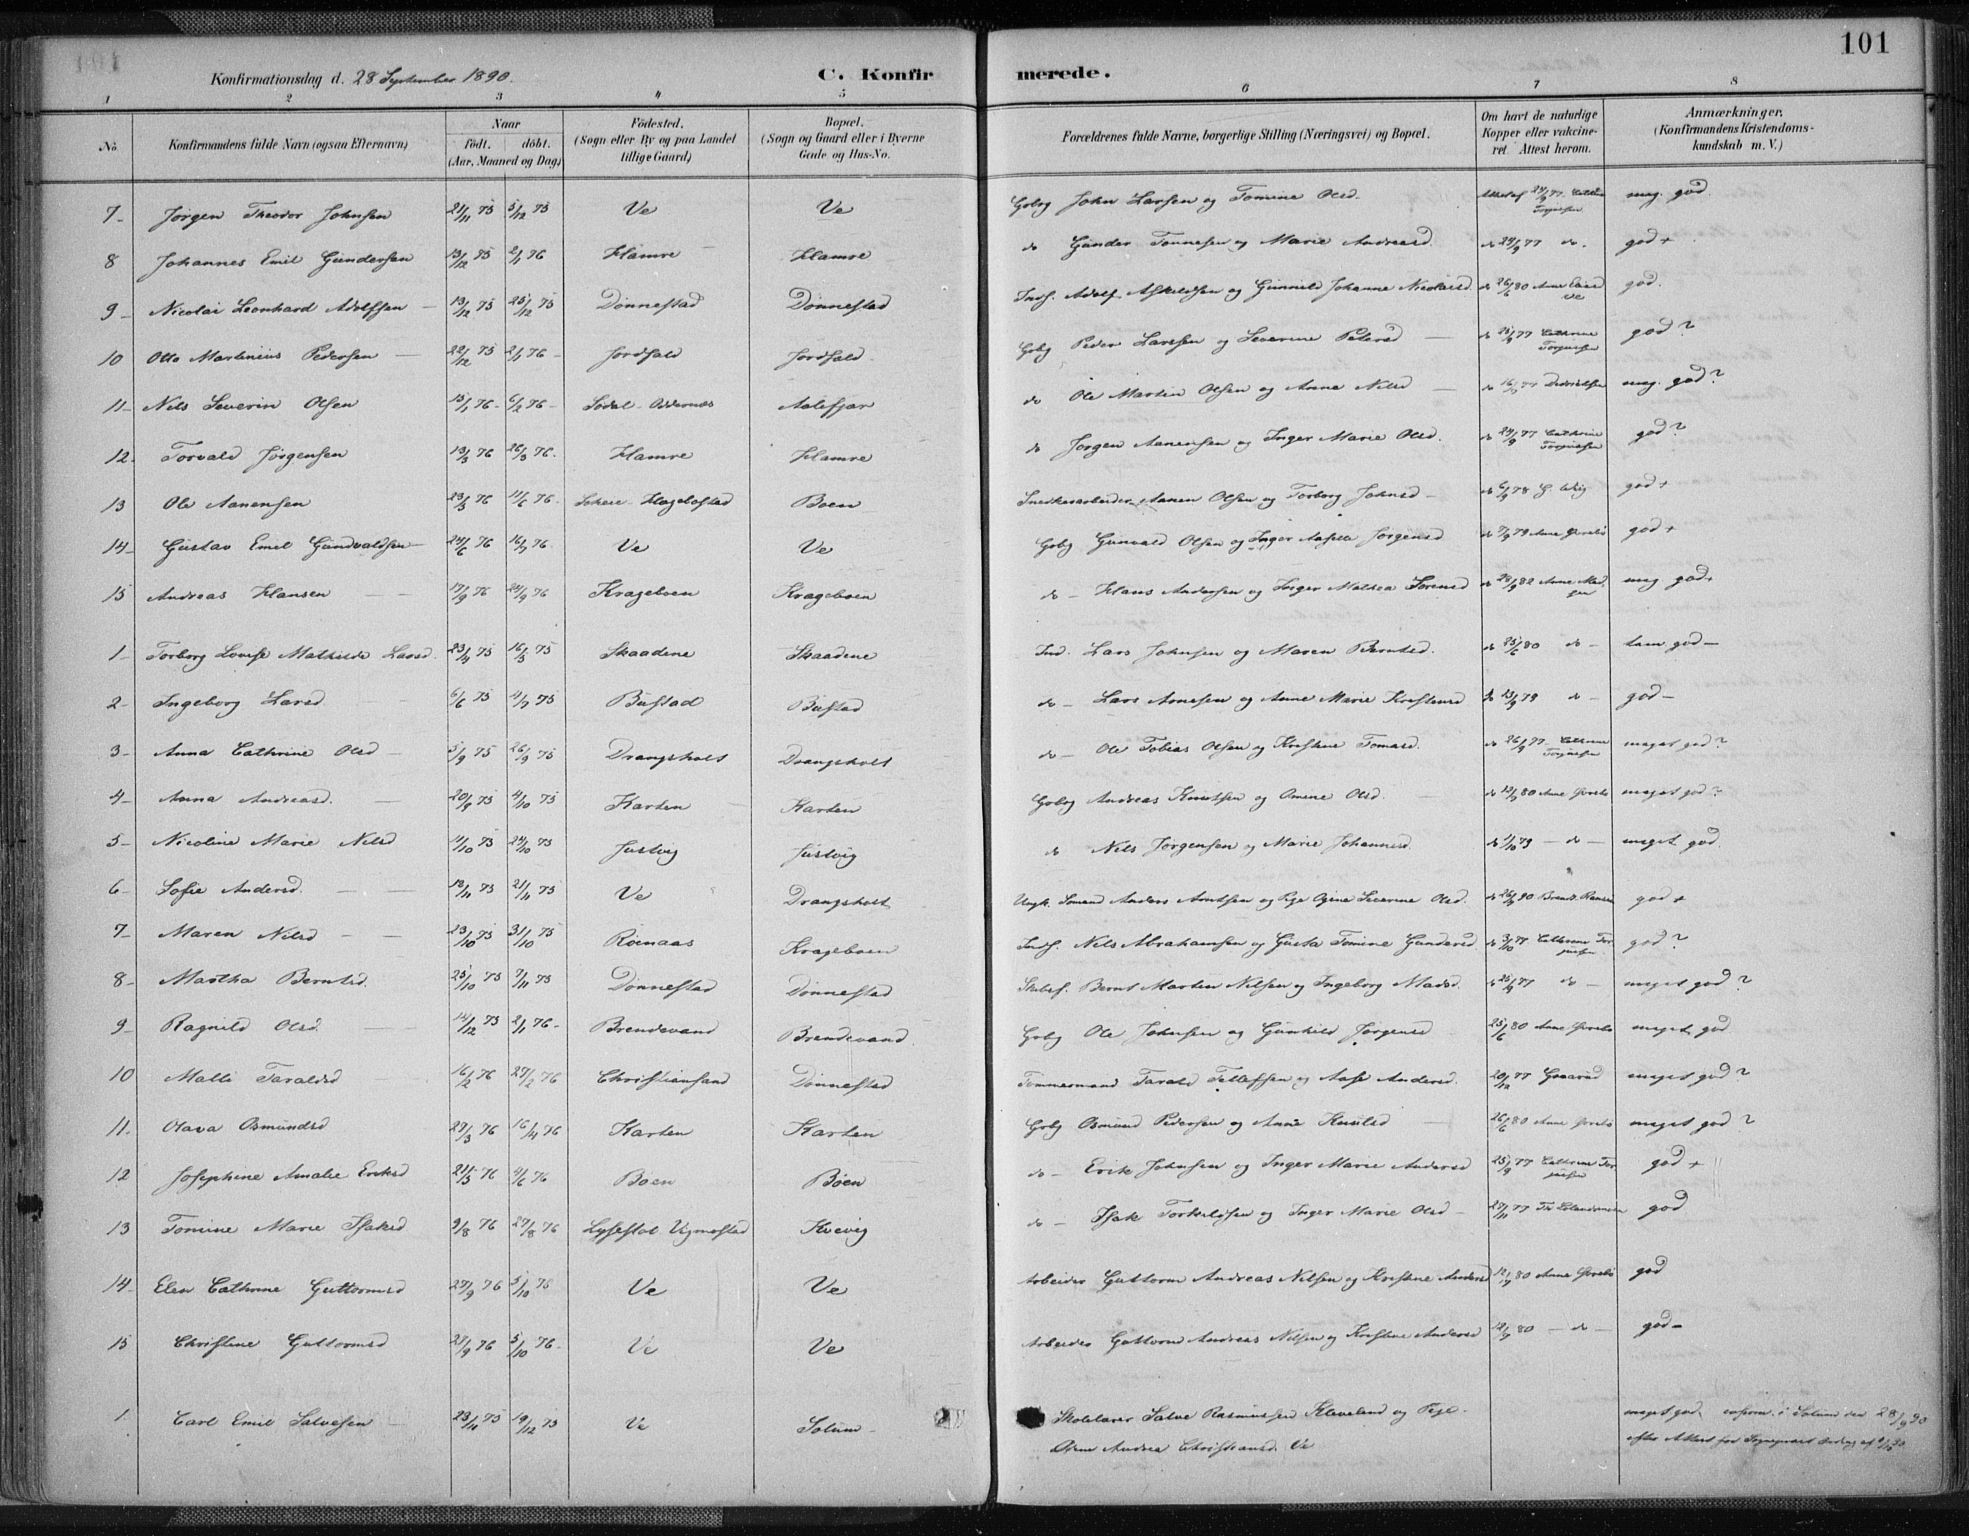 101
Konfirmationsdag d. 28 September 1890.
C. Konfirmerede.
1 2 3 4 5 6 7 8
No Konfirmandens fulde Navn (ogsaa Efternavn) Naar födt. döbt. (Aar, Maaned og Dag) Födested. (Sogn eller By og paa Landet tillige Gaard) Bopæl. (Sogn og Gaard eller i Byerne Gade og Hus-No. Forældrenes fulde Navne, borgerlige Stilling (Næringsvei) og Bopæl. Om havt de naturlige Kopper eller vakcineret. Attest herom. Anmærkninger. (Konfirmandens Kristendomskundskab m. V.)
7 Jørgen Theodor Johnsen 21/11 75 5/12 75 Ve Ve Grbrg John Larsen og Tomine Olsd. 24/9 77 Cathrine Torjussen meg. god.
8 Johannes Emil Gundersen 13/12 75 2/1 76 Hamre Hamre do Gunder Tønnesen og Marie Andreasd. do 24/9 77 do. god+
9 Nicolai Leonhard Adolfsen 13/12 75 25/12 75 Dønnestad Dønnestad Inds. Adolf Askildsen og Gunnild Johanne Nicolaisd. do 26/6 80 god.
10 Otto Martinius Pedersen 22/12 75 2/1 76 Jordfald Jordfald Grbrg Peder Larssen og Severine Petersd do 25/9 77 Cathrine Torjussen god?
11 Nils Severin Olsen 13/1 76 6/2 76 Sødal Oddernæs Aalefjær do Ole Martin Olsen og Anne Nilsd do meg. god?
12 Torvald Jørgensen 13/3 76 26/3 76 Hamre Hamre do Jørgen Aanensen og Inger Marie Olsd. do 24/9 77 Cathrine Torjussen god?
13 Ole Aanensen 23/3 76 11/6 76 Hægebostad Boen Snedkerarbeider Aanen Olsen og Torborg Johnsd do 6/9 78 god+
14 Gustav Emil Gundvaldsen 24/6 76 16/7 76 Ve Ve Grbrg Gunvald Olsen og Inger Jørgensd do 7/9 79 god+
15 Andreas Hansen 17/9 76 24/9 76 Krageboen Krageboen do Hans Andersen og Inger Mathea Sørensd do 28/9 82 meg god+
1 Torborg Lovise Mathilde Larsd 23/4 75 16/5 75 Skaadene Skaadene Ind. Lars Johnsen og Maren Berntsd. do 25/6 80 do tem. god
2 Ingeborg Larsd 6/6 75 4/7 75 Bustad Bustad do Lars Arnesen og Anne Marie Kristensd do 13/9 79 do god
3 Anna Cathrine Olsd 5/9 75 26/9 75 Drangsholt Drangsholt do Ole Tobias Olsen og Kristine Tomasd. do 26/9 77 Cathrine Torjussen meget god?
4 Anna Andreasd. 20/9 75 4/10 75 Karten Karten Grbrg Andreas Knutsen og Omine Olsd. do meget god?
5 Nicoline Marie Nilsd 11/10 75 24/10 75 Justvig Justvig do Nils Jørgensen og Marie Johannesd. do 11/10 79 do meget god.
6 Sofie Andersd. 12/11 75 21/11 75 Ve Drangsholt Ungk. Sømand Anders Arntsen og Pige Severine Olsd. do god+
7 Maren Nilsd 23/10 75 31/10 75 Røinaas Krageboen Inds. Nils Abrahamsen og Gusta Tomine Gundersd. do 3/10 77 Cathrine Torjussen god?
8 Martha Berntsd. 25/10 75 7/11 75 Dønnestad Dønnestad Bernt Martin Nilsen og Ingeborg Madsd. do 25/9 77 do meget god?
9 Ragnild Olsd. 14/12 75 2/1 76 Brendevand Brendevand. Grbrg Ole Johnsen og Gunhild Jørgensd 25/6 80 meget god
10 Malli Taraldsd 16/2 76 27/2 76 Christiansand Dønnestad Tømmermand Tarald Tellefsen og Aase Andersd. 20/12 77 meget god?
11. Olava Osmundsd 29/3 76 16/4 76 Karten Karten Grbrg Osmund Pedersen og Anne Knutsd 26/6 80 meget god?
12 Josephine Amalie Eriksd 21/5 76 4/6 76 Boen Boen do Erik Johnsen og Inger Marie Andersd 25/9 77 Cathrine Torjussen god+
13 Tomine Marie Isaksd 9/8 76 27/8 76 Vigmostad Kvevig do Isak Torkelsen og Inger Marie Olsd 27/11 77 god
14 Elen Cathrine Guttormsd 27/9 76 5/10 76 Ve Ve Arbeider Guttorm Andreas Nilsen og Kristine Andersd 12/7 80 god
15 Christine Guttormsd 27/9 76 5/10 76 Ve Ve Arbeider Guttorm Andreas Nilsen og Kristine Andersd 12/7 80 do god
1. Carl Emil Salvesen 23/11 75 19/12 75 Ve Solum Skolelærer Salve Rasmussen Kleveland og Pige
Andrea Christiansd. Ve
meget god. i Solum den 28/9 90
efter Attest fra Sognepræst